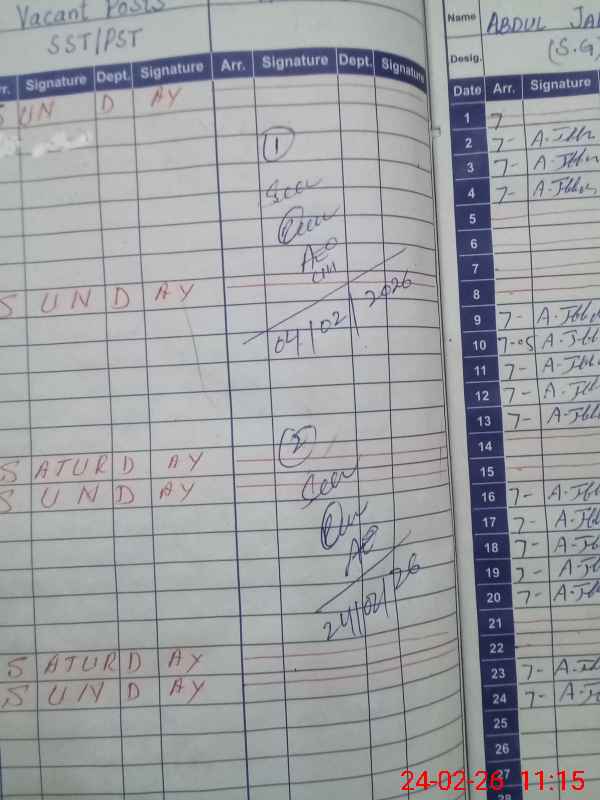 Vacant Posts
SST/PST
Arr. Signature Dept. Signature Arr. Signature Dept. Signature
SUNDAY
1
Seen
AEO
SUNDAY
04/02/2026
2
SATURDAY
SUNDAY
Seen
AEO
24/02/26
SATURDAY
SUNDAY
Name ABDUL JA
Desig. (S.G)
Date Arr. Signature
1 7
2 7- A-Jbb
3 7- A-Jbb
4 7- A-Jbb
5
6
7
8
9 7- A-Jbb
10 7-05 A-Jbb
11 7- A-Jbb
12 7- A-Jbb
13 7- A-Jbb
14
15
16 7- A-Jbb
17 7- A-Jbb
18 7- A-Jbb
19 7- A-Jbb
20 7- A-Jbb
21
22
23 7- A-Jbb
24 7- A-Jbb
25
26
27
28
24-02-26 11:15